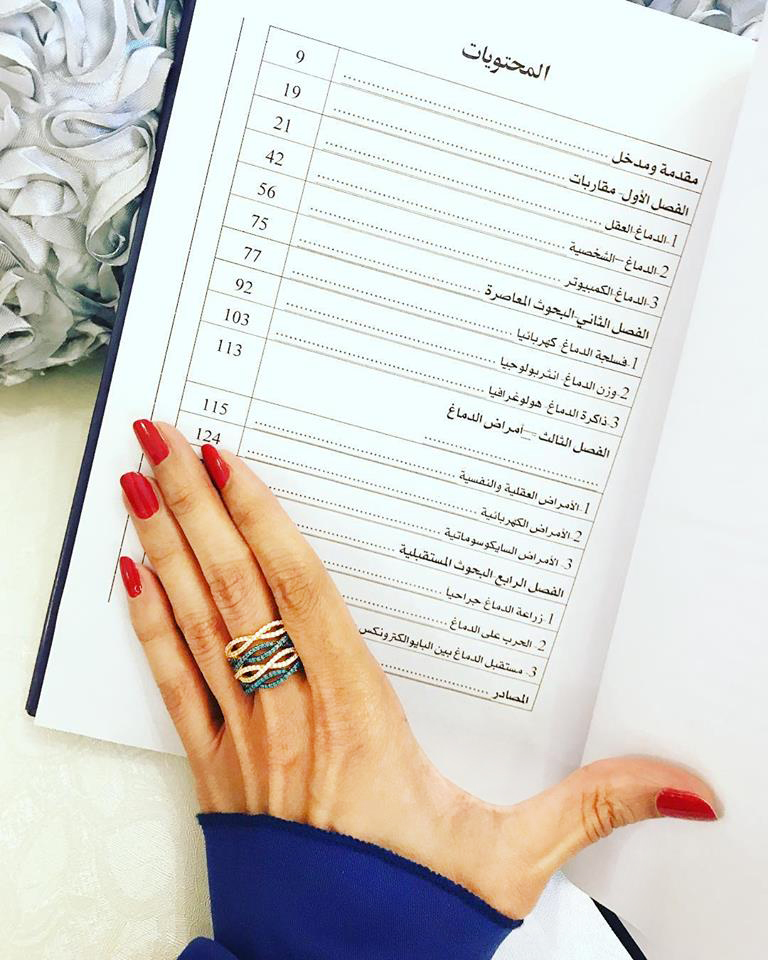 المحتويات
مقدمة ومدخل ........ 9
الفصل الأول- مقاربات ........ 19
1-الدماغ-العقل ........ 21
2-الدماغ –الشخصية ........ 42
3-الدماغ-الكمبيوتر ........ 56
الفصل الثاني-البحوث المعاصرة ........ 75
1-فسلجة الدماغ- كهربائيا ........ 77
2-وزن الدماغ- انثربولوجيا ........ 92
3-ذاكرة الدماغ- هولوغرافيا ........ 103
الفصل الثالث – أمراض الدماغ ........ 113
1-الأمراض العقلية والنفسية ........ 115
2-الأمراض الكهربائية ........ 124
3- الأمراض السايكوسوماتية ........
الفصل الرابع البحوث المستقبلية ........
1- زراعة الدماغ جراحيا ........
2- الحرب على الدماغ ........
3- مستقبل الدماغ بين البايوالكترونكس
المصادر ........